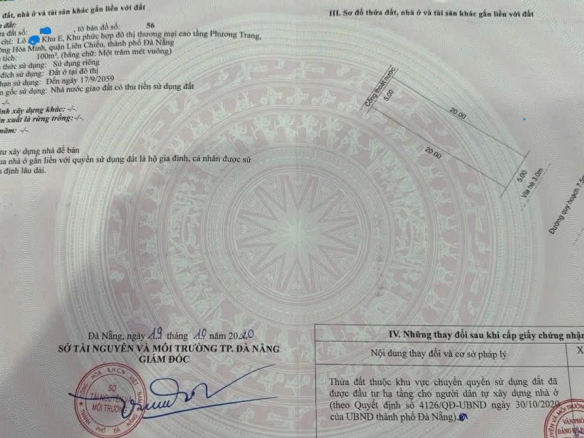 đất, nhà ở và tài sản khác gắn liền với đất
đất:
a đất số: , tờ bản đồ số: 56
chỉ: Lô Khu E, Khu phức hợp đô thị thương mại cao tầng Phương Trang,
ờng Hòa Minh, quận Liên Chiểu, thành phố Đà Nẵng
tích: 100m², (bằng chữ: Một trăm mét vuông)
thức sử dụng: Sử dụng riêng
đích sử dụng: Đất ở tại đô thị
hạn sử dụng: Đến ngày 17/9/2059
n gốc sử dụng: Nhà nước giao đất có thu tiền sử dụng đất
-/-
ình xây dựng khác: -/-
ản xuất là rừng trồng: -/-
năm: -/-
tư xây dựng nhà để bán
ua nhà ở gắn liền với quyền sử dụng đất là hộ gia đình, cá nhân được sử
n định lâu dài.
III. Sơ đồ thửa đất, nhà ở và tài sản khác gắn liền với đất
Cống thoát nước
5.00
20.00
20.00
5.00
Vỉa hè 3.0m
Đường quy hoạch 7.5
Đà Nẵng, ngày 19 tháng 10 năm 2020
SỞ TÀI NGUYÊN VÀ MÔI TRƯỜNG TP. ĐÀ NẴNG
GIÁM ĐỐC
SỞ
TÀI NGUYÊN
MÔI TRƯỜNG
IV. Những thay đổi sau khi cấp giấy chứng nhận
Nội dung thay đổi và cơ sở pháp lý
X
Thửa đất thuộc khu vực chuyển quyền sử dụng đất đã
được đầu tư hạ tầng cho người dân tự xây dựng nhà ở
(theo Quyết định số 4126/QĐ-UBND ngày 30/10/2020
của UBND thành phố Đà Nẵng).